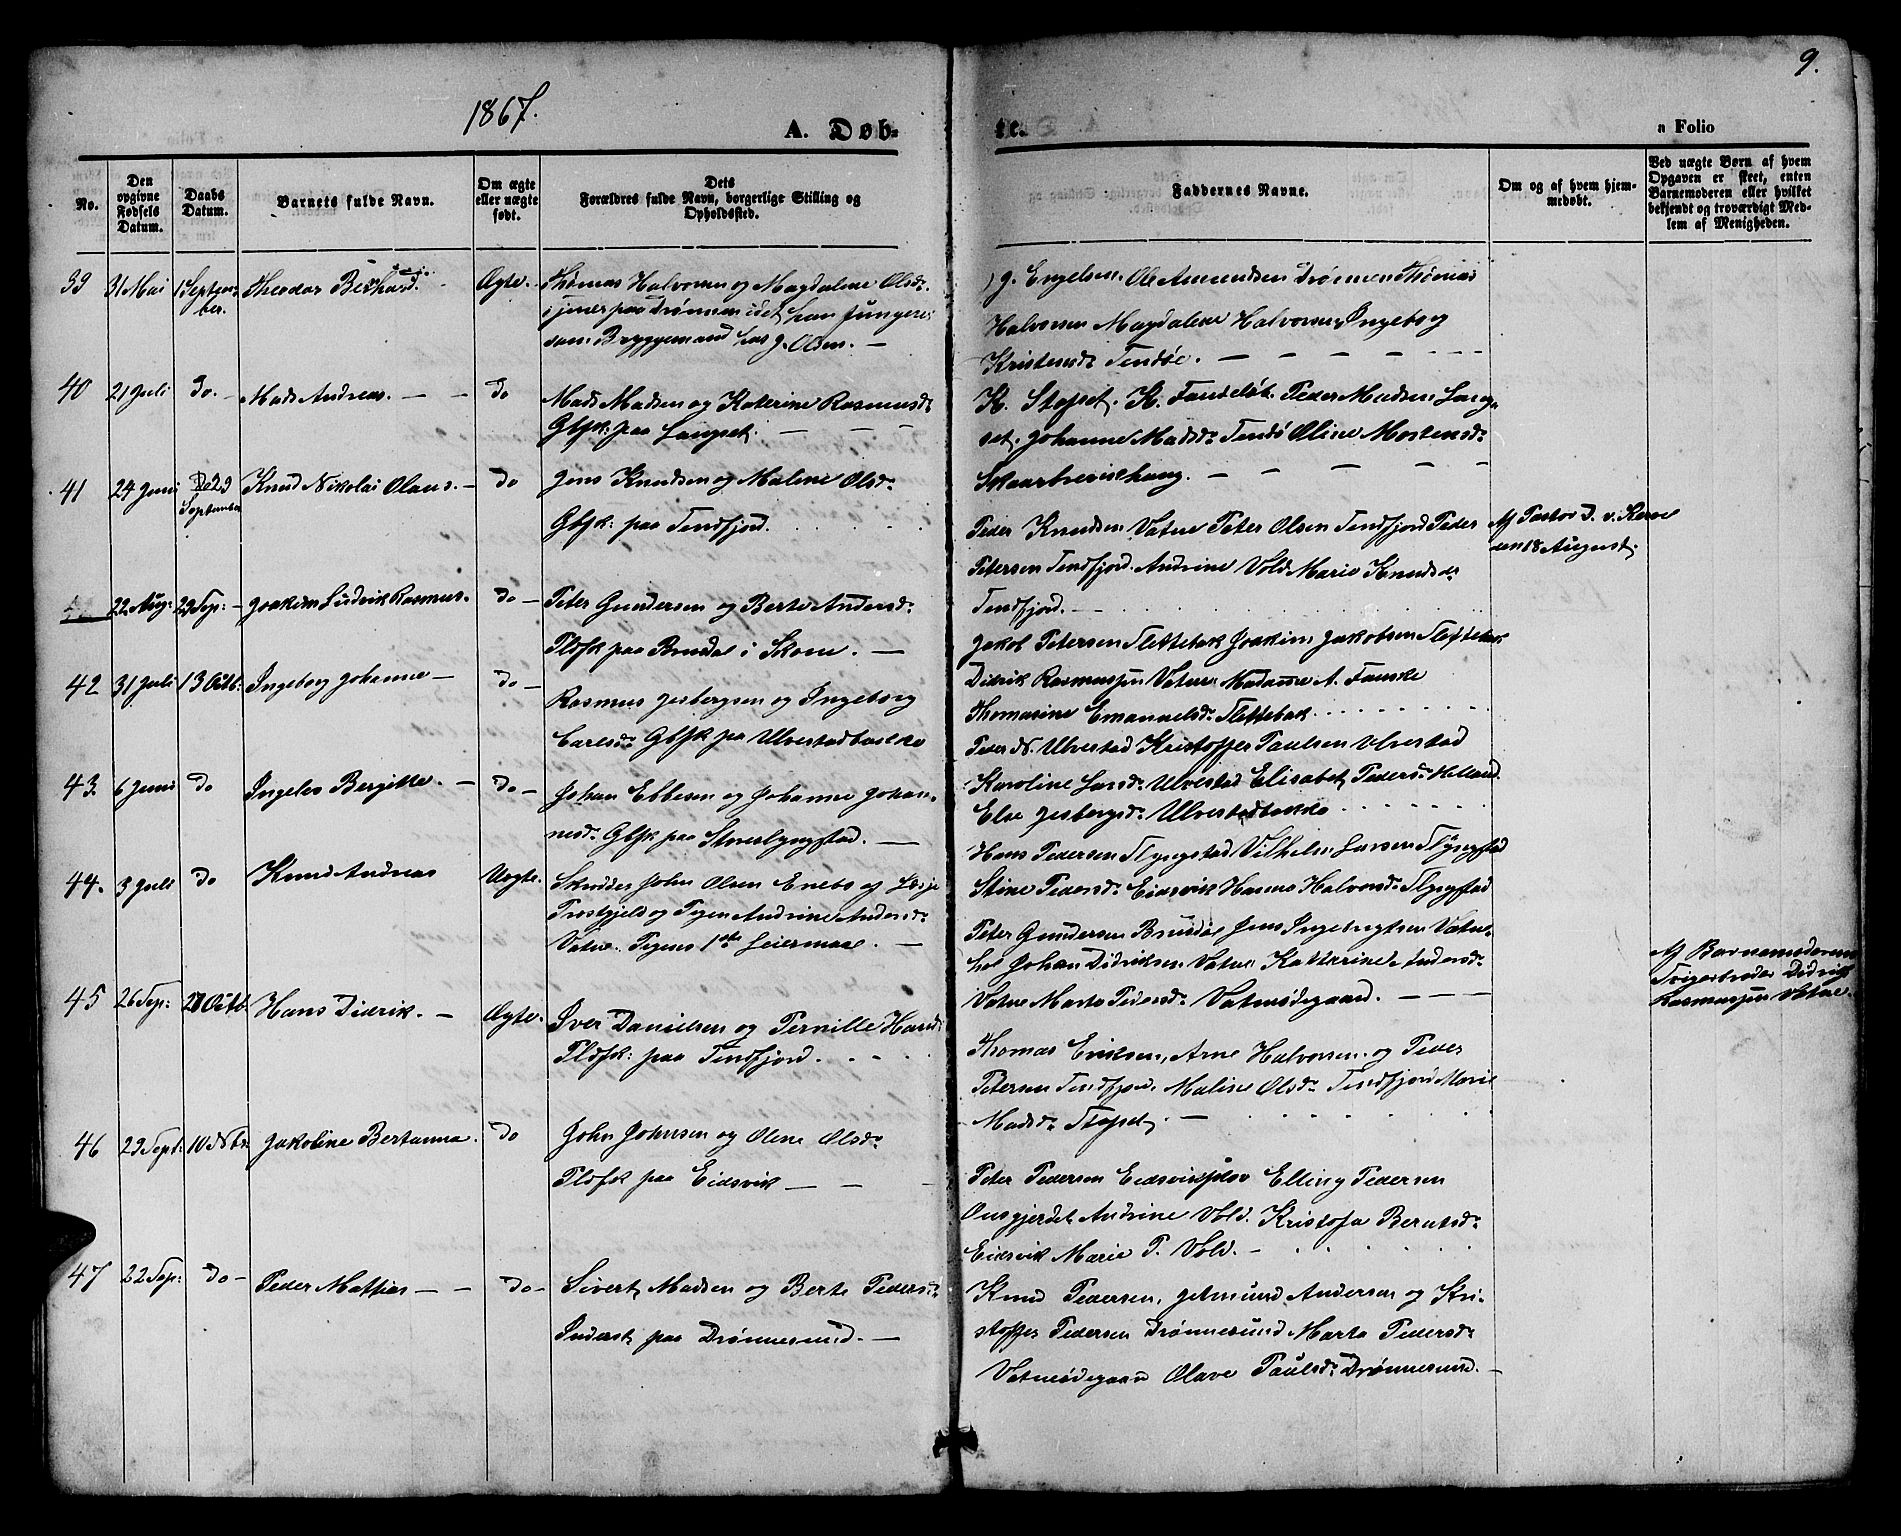 9.
1867.
A. Døb-
te.
a Folio
No.
Den opgivne Fødsels Datum.
Daabs Datum.
Barnets fulde Navn.
Om ægte eller uægte født.
Dets Forældres fulde Navn, borgerlige Stilling og Opholdssted.
Faddernes Navne.
Om og af hvem hjemmedøbt.
Ved uægte Børn af hvem Opgaven er skeet, enten Barnemoderen eller hvilket bekjendt og troværdigt Medlem af Menigheden.
39 31 Mai 1 September. Theodor Berhard. Ægte.
Thomas Halvorsen og Magdalene Olsd.
som Bryggemand hos J. Olsen. —
J. Engelsen. Ole Amundsen Drønnen Thomas
Halvorsen Magdalene Halvorsen, Ingeborg
Kristensd. Tendøe. — — — —
40 21 Juli Do. — Mads Andreas. — — Do
Mads Madsen og Katerine Rasmusd.
Gbfk: paa Langset. — — —
K. Stopset. K. Peder Madsen Lang-
set. Johanne Madsd. Tendø Oline Mortensd.
41 24 Juni September Knud Nikolai Olaus. — Do
Jens Knudsen og Maline Olsd.
Gbfk: paa Tendfjord.
Peder Knudsen Vatne Peter Olsen Tendfjord Peder
Petersen Tendfjord. Andrine Vold Marie Knudsd.
Tendfjord. —
Af Pastor
den 18 August.
22 Aug: Sep: — Joakim Ludvik Rasmus. Do —
Peter Gundersen og Berte Andersd.
Plsfk paa Brusdal i Skoue. —
Jakob Petersen Slettebak Joakim Jakobsen Slettebak
Didrik Rasmussen Vatne Madame A. Fanske
Thomasine Emanuelsd. Slettebak.
42 31 Juli 13 Octb: Ingeborg Johanne — Do —
Rasmus Jesbergsen og Ingeborg
Carlsd. Gbfk paa Ulvestadbakke
Peder N. Ulvestad Kristoffer Paulsen Ulvestad
Karoline Larsd. Ulvestad Elisabet Pedersd. Helland
Else Jesbergsd. Ulvestadbakke
43. 6 Juni Do Ingelev Bergitte. — Do —
Johan Ebbesen og Johanne Johan-
nesd. Gbfk paa Storeflyngstad. —
Hans Pedersen Flyngstad Vilhelm Larsen Flyngstad
Stine Pedersd. Eidsvik Hanna Halvorsd. Flyngstad
44. 3 Juli Do Knud Andreas Uægte.
Skrædder John Olsen Enebo af Lesje
Præstgjeld og Pigen Andrine Andersd.
Vatne. Pigens 1ste Leiermaal. —
Peter Gundersen Brusdal Jens Ingebrigtsen Vatne-
hol Johan Didriksen Vatne Katterine Andersd.
Vatne Marta Pedersd. Vatneødegaard. — — —
Af Barnemoderens
Svigerbroder Didrik
Rasmussen Vatne.
45 26 Sep: 27 Octb Hans Didrik. — Ægte.
Iver Danielsen og Pernille Hansd.
Plsfk: paa Tendfjord.
Thomas Eriksen, Arne Halvorsen og Peder
Petersen Tendfjord. Maline Olsd. Tendfjord Marie
Madsd. Stopset. —
46 23 Sept: 10 Nbr. Jakoline Bertanna. Do
John Johnsen og Olene Olsd.
Plsfk paa Eidsvik — — —
Peter Pedersen Eidsvik Elling Pedersen
Ousgjerdet Andrine Vold. Kristofa Berntsd.
Eidsvik Marie P. Vold. —
47 22 Sep: Do — Peder Mathias — — Do —
Sivert Madsen og Berte Pedersd.
Inderst paa Drønnesund. —
Knud Pedersen, Amund Andersen og Kri-
stoffer Pedersen Drønnesund Marta Pedersd.
Vatneødegaard Olave Paulsd. Drønnesund. —